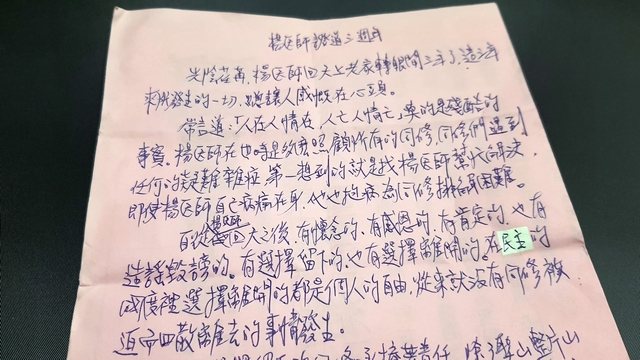 楊医師說道三週年
光陰荏苒,楊医師回天上老家轉眼間三年了,這三年
來所發生的一切,總讓人感慨在心頭。
常言道:「人在人情在,人亡人情亡」真的是殘酷的
事實。楊医師在世時是如此照顧所有的同修,同修們遇到
任何的疑難雜症,第一想到的就是找楊医師幫忙解決,
即使楊医師自己病痛在身,他也抱病為同修排解困難。
自從楊医師回天之後,有懷念的,有感恩的,有肯定的,也有
造謠毀謗的。有選擇留下的,也有選擇離開的。在民主的
國度裡選擇離開的都是個人的自由,從來就沒有同修被
迫而四散離去的事情發生。